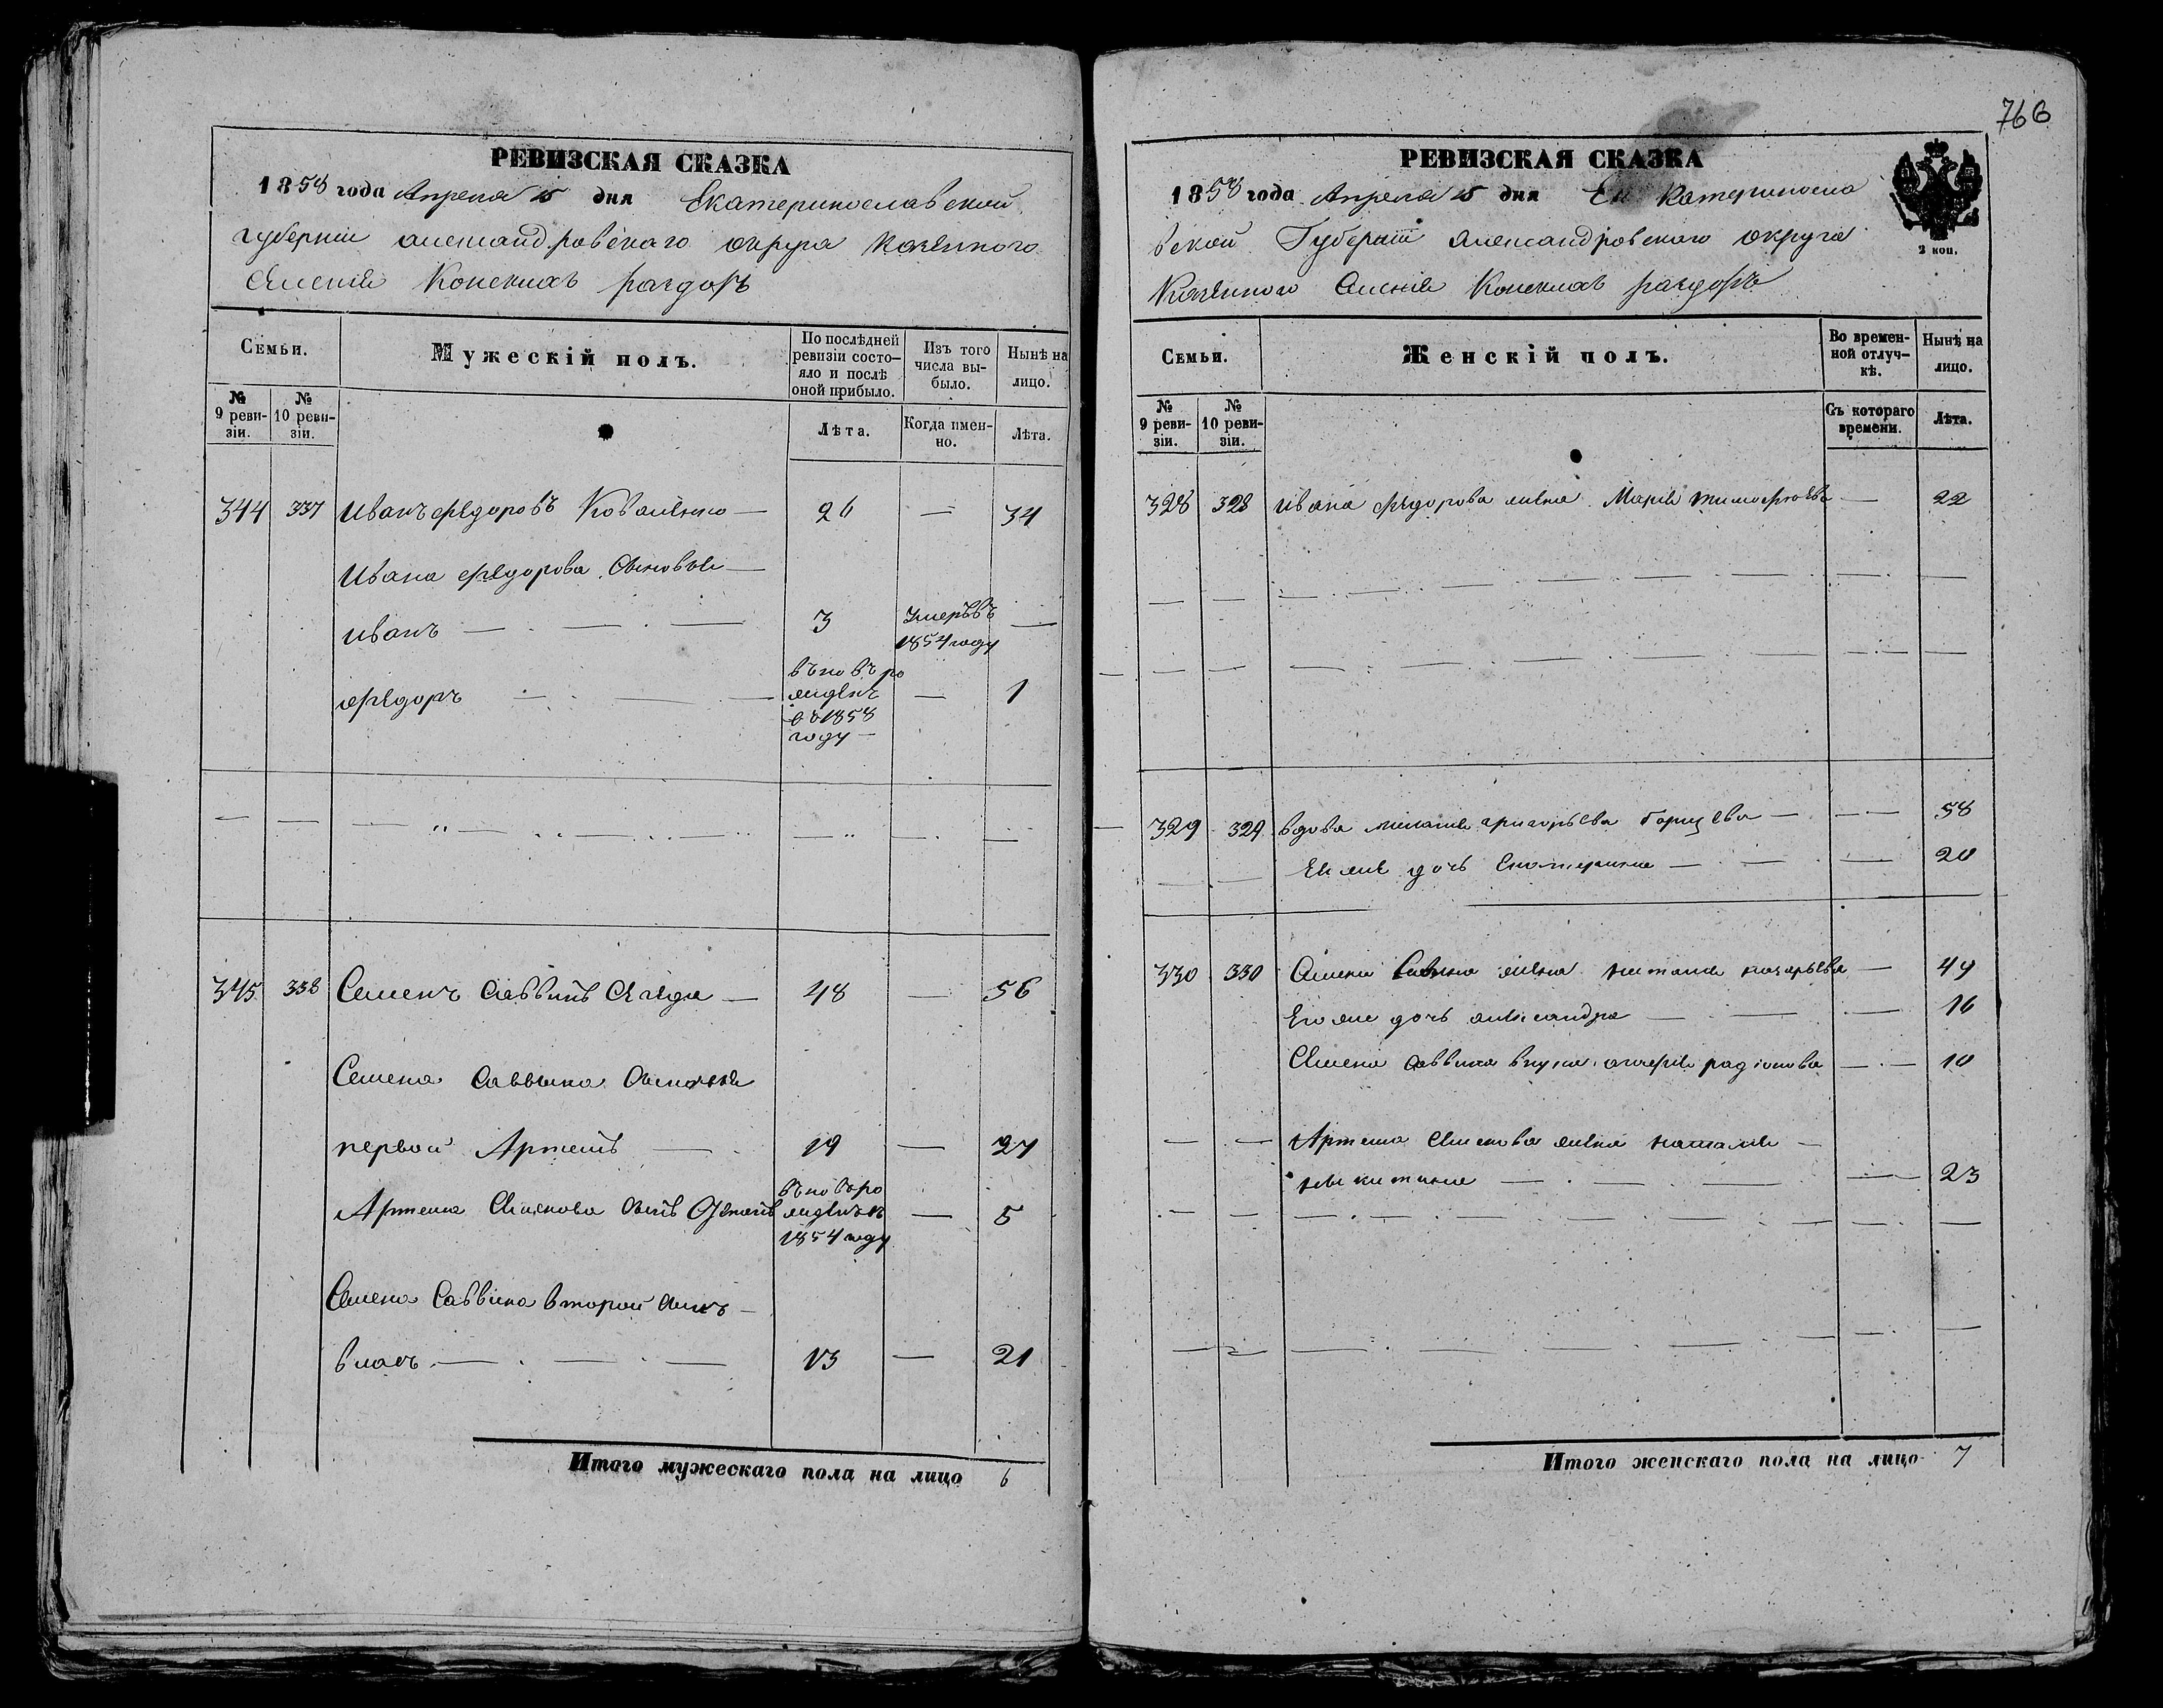 766
РЕВИЗСКАЯ СКАЗКА
1858 года Апреля 15 дня Екатеринославской
губернии александровскаго округа казенного
Селения Конских раздоръ
Семьи.
Мужескій полъ.
По послѣдней ревизіи состо-
яло и послѣ
оной прибыло.
Изъ того
числа вы-
было.
Нынѣ на
лицо.
№
9 реви-
зіи.
№
10 реви-
зіи.
Лѣта.
Когда имен-
но.
Лѣта.
344 337 Иванъ федоровъ Коваленко — 26 — 34
Ивана федорова Сыновья —
иванъ — 3 Умеръ въ 1854 году —
федоръ — вновь ро
жденъ
въ 1858
году — — 1
345 338 Семенъ Саввинъ — 48 — 56
Семена Саввина Сыновья
первой Артемъ — 19 — 27
Артема Семенова Сынъ вновь ро
жденъ въ
1854 году — 5
Семена Саввина второй Сынъ —
власъ — 13 — 21
Итого мужескаго пола на лицо 6
РЕВИЗСКАЯ СКАЗКА
1858 года Апреля 15 дня Екатериносла
вской Губернии Александровского округа
Казенного Селения Конских раздоръ
2 коп.
Семьи.
Женскій полъ.
Во времен-
ной отлуч-
кѣ.
Нынѣ на
лицо.
№
9 реви-
зіи.
№
10 реви-
зіи.
Съ котораго
времени.
Лѣта.
328 328 Ивана федорова жена Мария тимофеева — 22
329 329 вдова григорьева — 58
Ея же дочь Екатерина — 20
330 330 Семена Савина жена — 49
Его же дочь александра — 16
Семена Саввина внука радионова — 10
Артема Семенова жена наталия —
никитина — 23
Итого женскаго пола на лицо 7